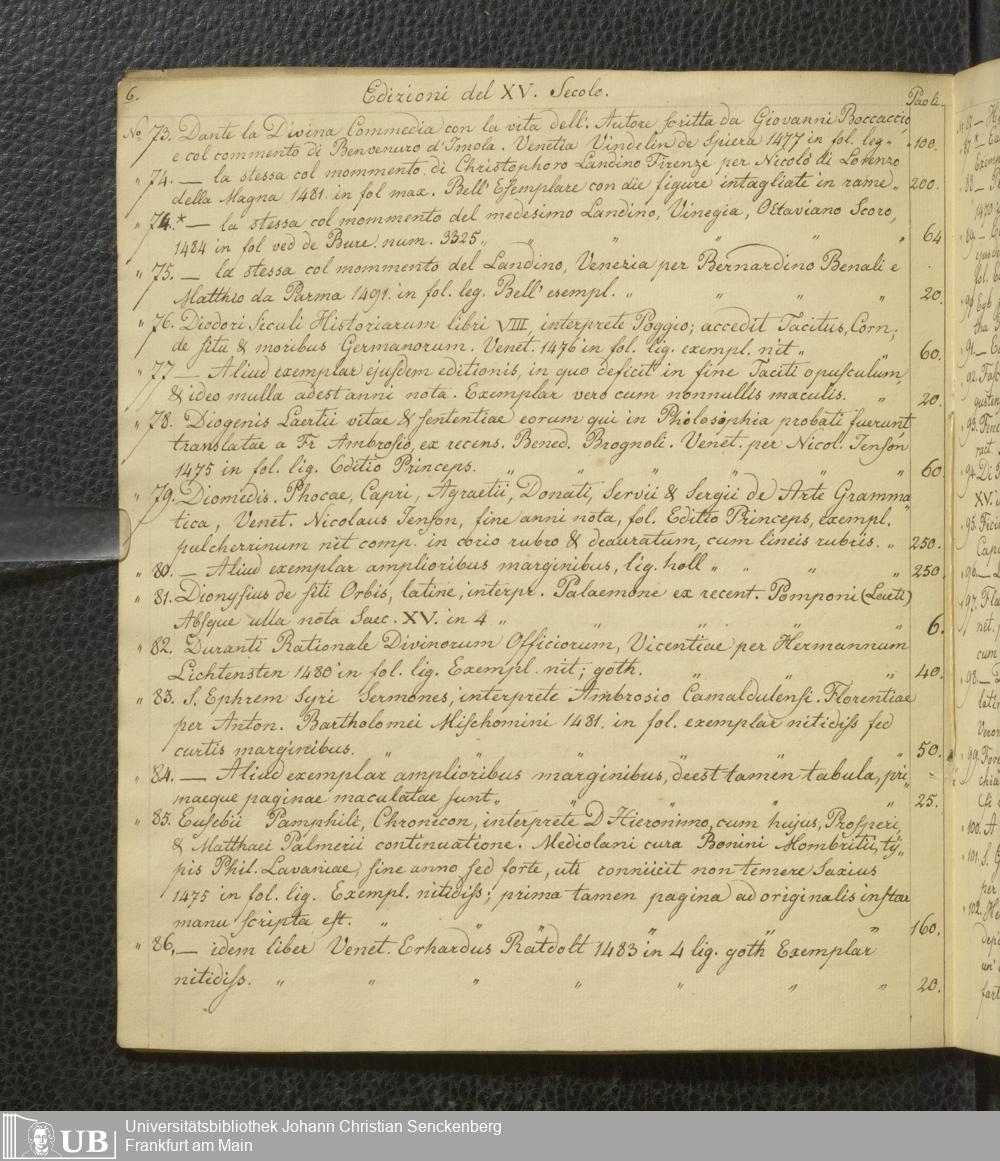 6. Edizioni del XV. Secolo. Paoli.
No. 73. Dante la Divina Commedia con la vita dell' Autore scritta da Giovanni Boccaccio,
e col commento di Benvenuro d'Imola. Venetia Vindelin de Spiera 1477 in fol. leg „ 100.
„ 74. — la stessa col mommento di Christophoro Landino Firenze per Nicolò di Lorenzo
della Magna 1481. in fol max. Bell' Essemplare con die figure intagliate in rame „ 200.
„ 74.* — la stessa col mommento del medesimo Landino, Vinegia, Octaviano Scoro,
1484 in fol ved de Bure. num. 3325 „ „ „ „ „ 64
„ 75. — la stessa col mommento del Landino, Venezia per Bernardino Benali e
Matthio da Parma 1491. in fol. leg. Bell' esempl. „ „ „ „ 20.
„ 76. Diodori Siculi Historiarum libri VIII, interprete Poggio; accedit Tacitus, Corn;
de situ & moribus Germanorum. Venet. 1476 in fol. lig. exempl. nit „ „ 60.
„ 77 — Aliud exemplar ejusdem editionis, in quo deficit in fine Taciti opusculum,
& ideo mulla adest anni nota. Exemplar vero cum nonnullis maculis. „ 20.
„ 78. Diogenis Laertii vitae & sententiae eorum qui in Philosophia probati fuerunt,
translatae a Fr Ambrosio, ex recens. Bened. Brognoli. Venet. per Nicol. Jenson
1475 in fol. lig. Editio Princeps. „ „ „ „ „ „ 60.
„ 79. Diomedis. Phocae, Capri, Agraetii, Donati, Servii & Sergii de Arte Gramma„
tica, Venet. Nicolaus Jenson, sine anni nota, fol. Editio Princeps, exempl.
pulcherrinum nit comp. in corio rubro & deauratum, cum lineis rubriis. „ 250.
„ 80. — Aliud exemplar amplioribus marginibus, lig. holl „ „ „ „ 250.
„ 81. Dionysius de siti Orbis, latine, interpr. Palaemone ex recent. Pomponi (Laeti)
Absque ulla nota Saec. XV. in 4 „ „ „ „ „ 6.
„ 82. Duranti Rationale Divinorum Officiorum, Vicentiae per Hermannum
Lichtensten 1480 in fol. lig. Exempl. nit; goth. „ „ „ 40.
„ 83. S. Ephrem Syri Sermones, interprete Ambrosio Camaldulensi. Florentiae
per Anton. Bartholomei Mischomini 1481. in fol. exemplar nitidiss sed
curtis marginibus. „ „ „ „ „ „ 50.
„ 84. — Aliud exemplar amplioribus marginibus, deest tamen tabula, pri„
maeque paginae maculatae sunt „ „ „ „ „ 25.
„ 85. Eusebii Pamphili, Chronicon, interprete D Hieronimo, cum hujus, Prosperi,
& Matthaei Palmerii continuatione. Mediolani cura Bonini Mombritii, ty„
pis Phil. Lavaniae, sine anno sed forte, uti conniicit non temere Saxius
1475 in fol. lig. Exempl. nitidiss; prima tamen pagina ad originalis instar
manu scripta est. „ „ „ „ „ „ 160.
„ 86, — idem liber Venet. Erhardus Ratdolt 1483 in 4 lig. goth Exemplar
nitidiss. „ „ „ „ „ „ „ 20.
UB
Universitätsbibliothek Johann Christian Senckenberg
Frankfurt am Main